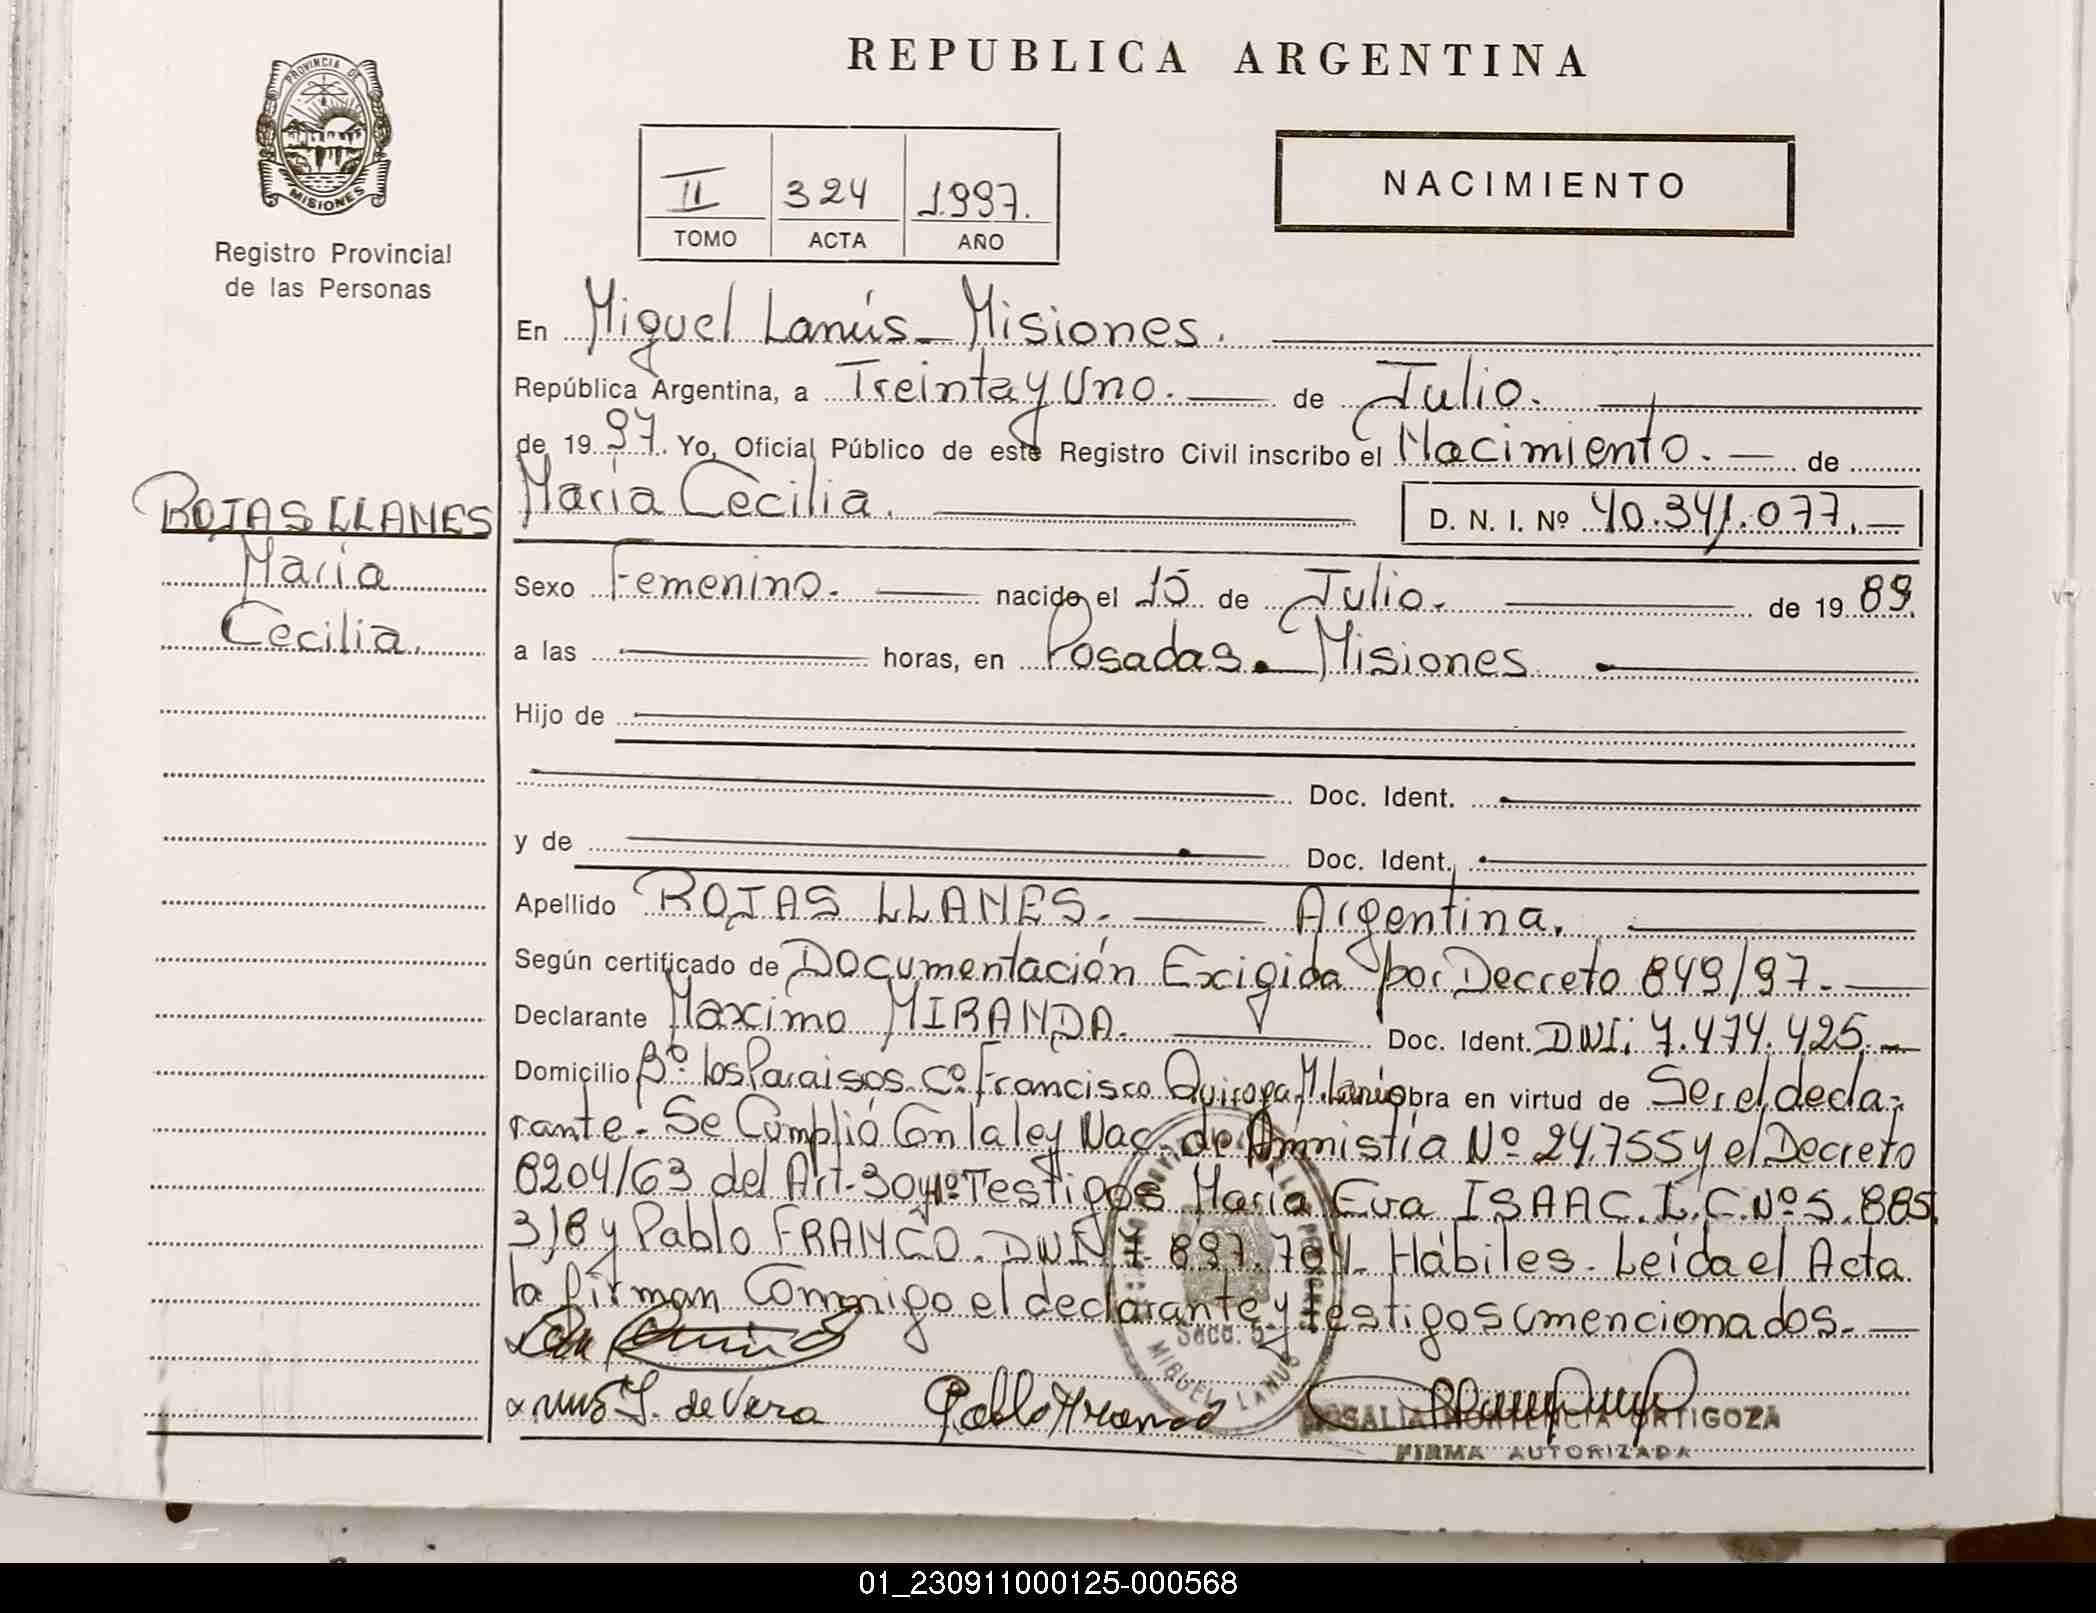 REPUBLICA ARGENTINA
PROVINCIA DE
MISIONES
Registro Provincial
de las Personas
II 324 1997.
TOMO ACTA AÑO
NACIMIENTO
En Miguel Lanús - Misiones.
República Argentina, a Treinta y Uno. de Julio.
de 19 97. Yo, Oficial Público de este Registro Civil inscribo el Nacimiento. de
María Cecilia. D. N. I. Nº 40.341.077.
ROJAS LLANES
María
Cecilia.
Sexo Femenino. nacido el 15 de Julio. de 19 89.
a las horas, en Posadas - Misiones
Hijo de
Doc. Ident.
y de Doc. Ident.
Apellido ROJAS LLANES. Argentina.
Según certificado de Documentación Exigida por Decreto 849/97.
Declarante Maximo MIRANDA. Doc. Ident. DNI. 7.474.425.
Domicilio Bº los Paraisos. Cº Francisco Quiroga M. Lanús obra en virtud de Ser el decla-
rante - Se Cumplió Con la ley Nac. de Amnistía Nº 24.755 y el Decreto
8204/63 del Art-30 Testigos María Eva ISAAC. L.C. Nº 5.885.
318 y Pablo FRANCO. DNI 7.897.704. Hábiles - Leída el Acta
la firman Conmigo el declarante y testigos mencionados.
Secc. 5
MIGUEL LANUS
J. de Vera Pablo Franco
ROSALIA HORTENCIA ORTIGOZA
FIRMA AUTORIZADA
01_230911000125-000568